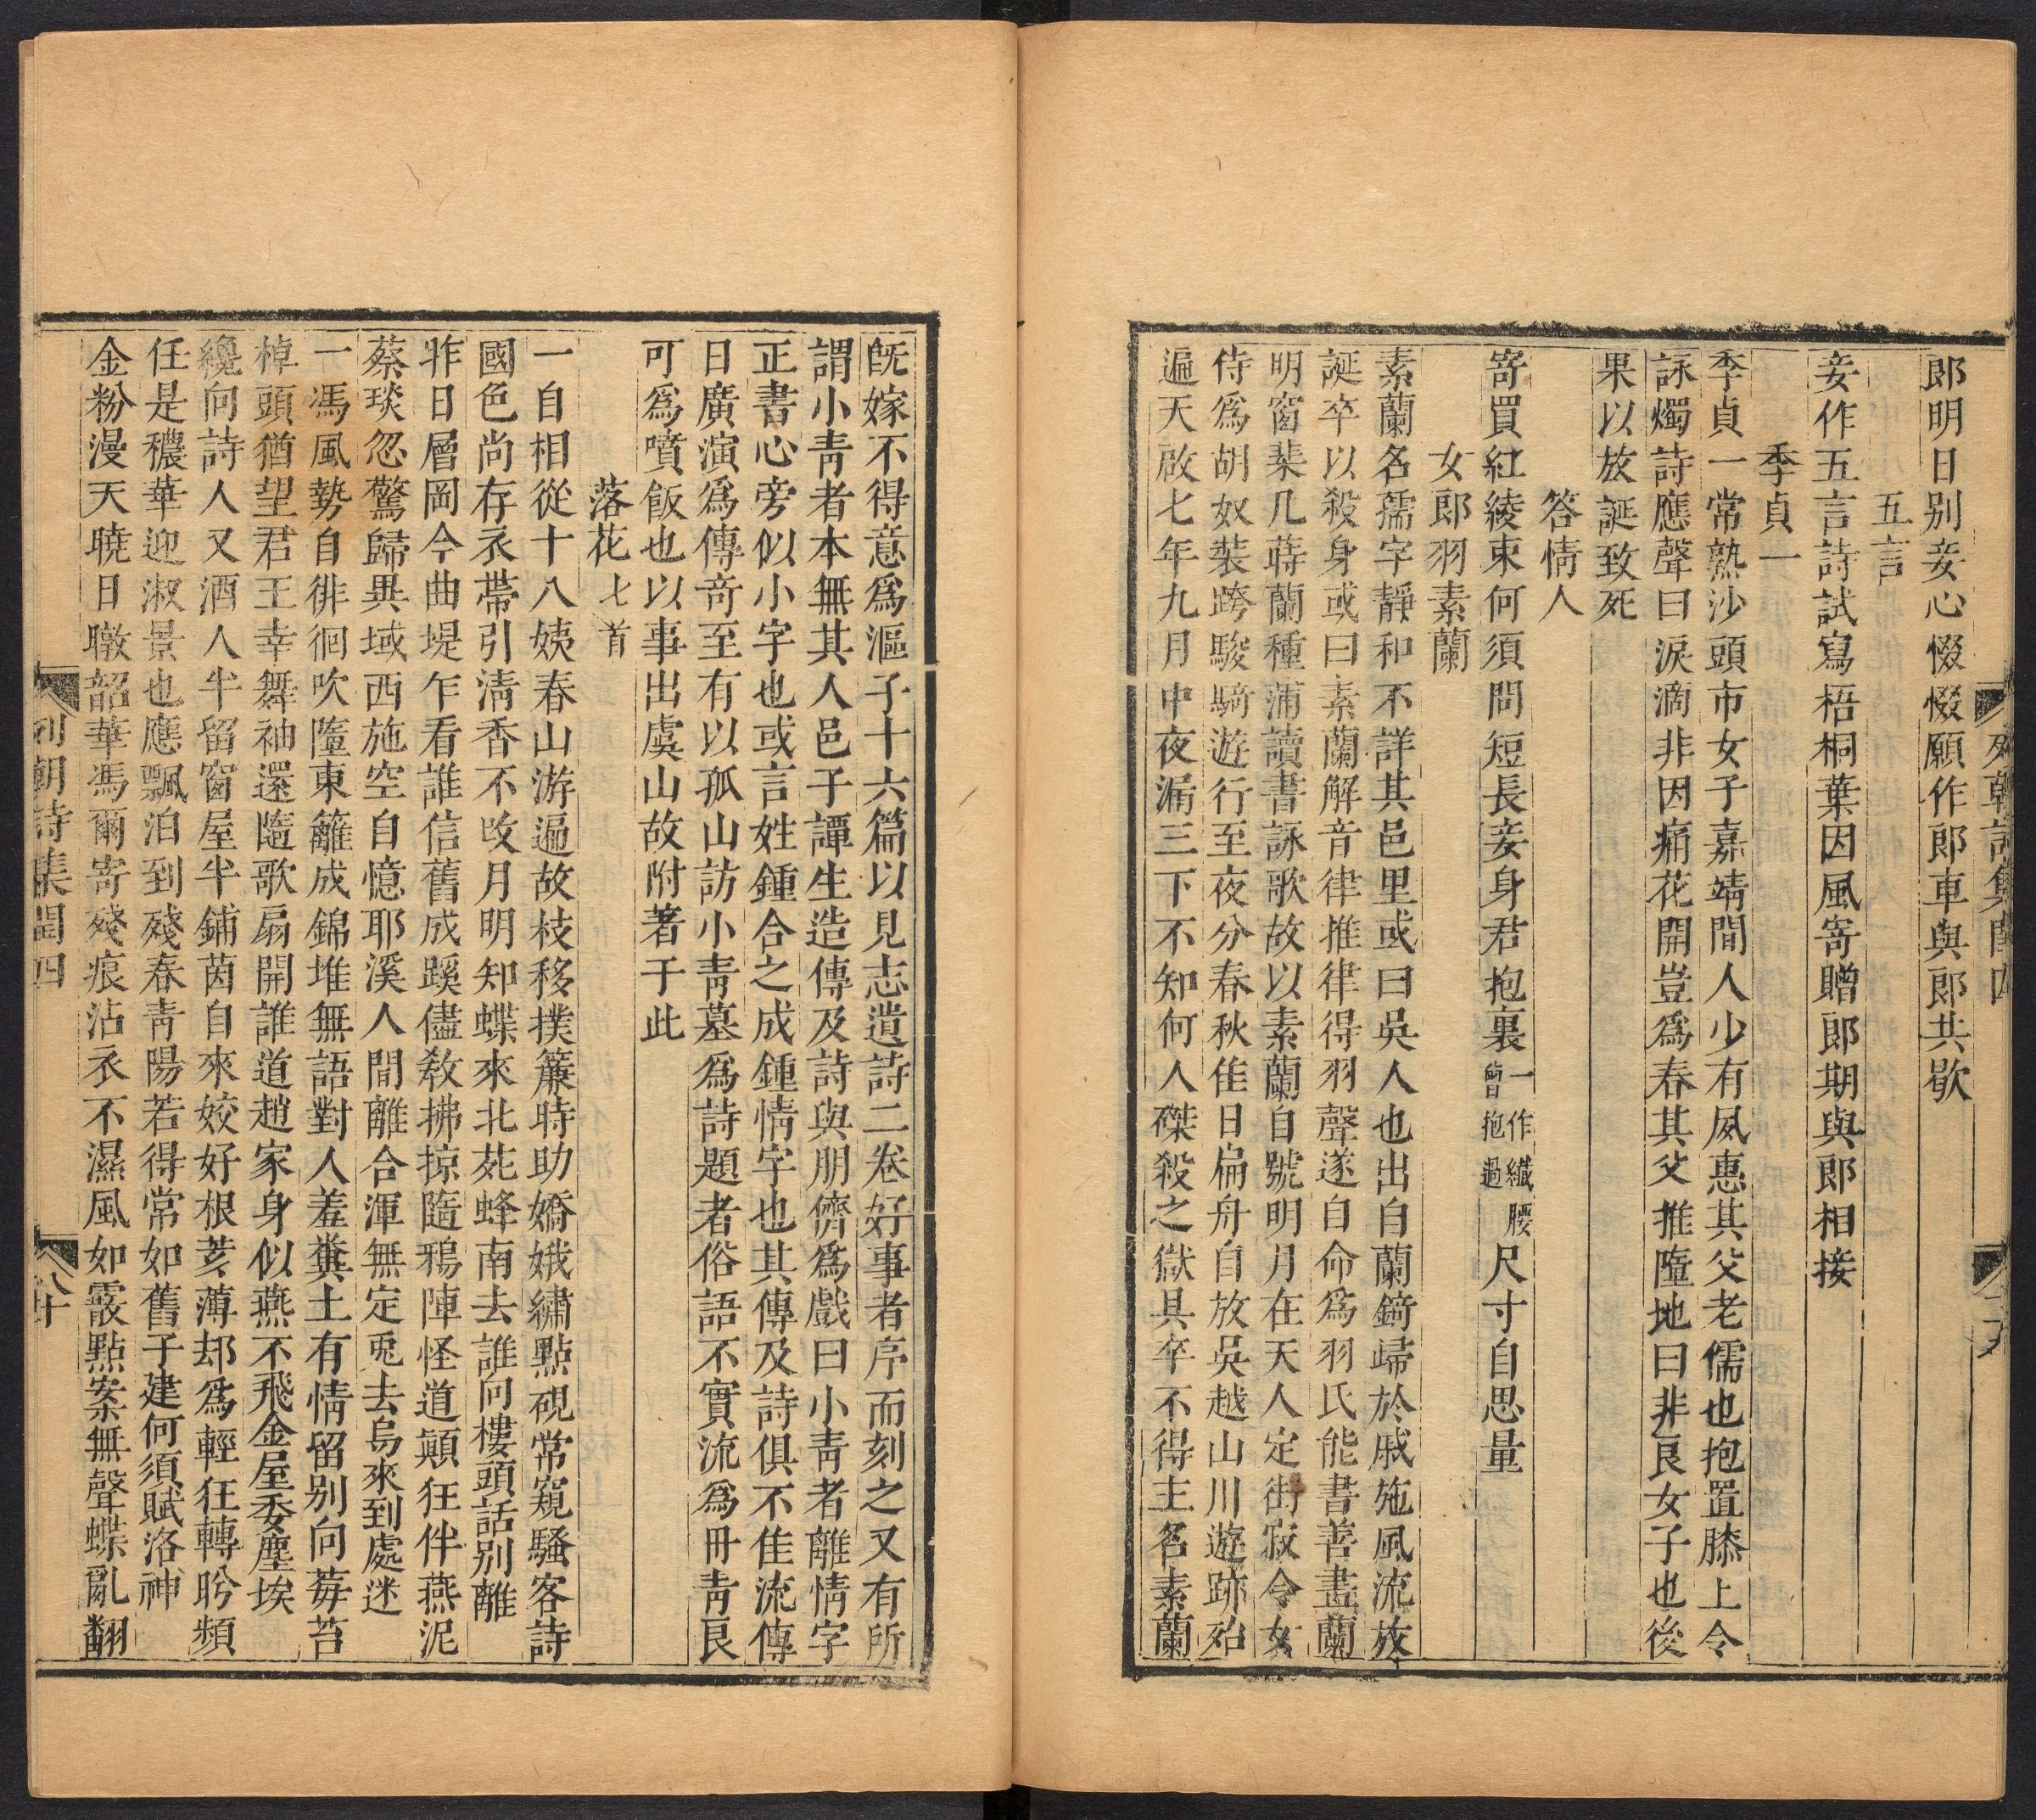 郎明日别妾心惙惙願作郎車與郎共歇
五言
妾作五言詩試寫梧桐葉因風寄贈郎期與郎相接
季貞一
季貞一常熟沙頭市女子嘉靖間人少有夙惠其父老儒也抱置膝上令
詠燭詩應聲曰淚滴非因痛花開豈爲春其父推墮地曰非良女子也後
果以放誕致死
答情人
寄買紅綾束何須問短長妾身君抱裏一作纖腰曾抱過尺寸自思量
女郎羽素蘭
素蘭名孺字靜和不詳其邑里或曰吳人也出自蘭錡歸於戚施風流放
誕卒以殺身或曰素蘭解音律推律得羽聲遂自命爲羽氏能書善畫蘭
明窗棐几蒔蘭種蒲讀書詠歌故以素蘭自號明月在天人定街寂令女
侍爲胡奴裝跨駿騎遊行至夜分春秋佳日扁舟自放吳越山川遊跡殆
遍天啟七年九月中夜漏三下不知何人磔殺之獄具卒不得主名素蘭
既嫁不得意爲漚子十六篇以見志遺詩二卷好事者序而刻之又有所
謂小青者本無其人邑子譚生造傳及詩與朋儕爲戲曰小青者離情字
正書心旁似小字也或言姓鍾合之成鍾情字也其傳及詩俱不佳流傳
日廣演爲傳奇至有以孤山訪小青墓爲詩題者俗語不實流爲丹青良
可爲噴飯也以事出虞山故附著于此
落花七首
一自相從十八姨春山游遍故枝移撲簾時助嬌娥繡點硯常窺騷客詩
國色尚存衣帶引清香不改月明知蝶來北苑蜂南去誰向樓頭話别離
昨日層岡今曲堤乍看誰信舊成蹊儘教拂掠隨鴉陣怪道顛狂伴燕泥
蔡琰忽驚歸異域西施空自憶耶溪人間離合渾無定兎去烏來到處迷
一馮風勢自徘徊吹墮東籬成錦堆無語對人羞糞土有情留别向莓苔
棹頭猶望君王幸舞袖還隨歌扇開誰道趙家身似燕不飛金屋委塵埃
纔向詩人又酒人半留窗屋半鋪茵自來姣好根荄薄却爲輕狂轉盻頻
任是穠華迎淑景也應飄泊到殘春青陽若得常如舊子建何須賦洛神
金粉漫天曉日暾韶華馮爾寄殘痕沾衣不濕風如霰點案無聲蝶亂翻
列朝詩集閏四
八十